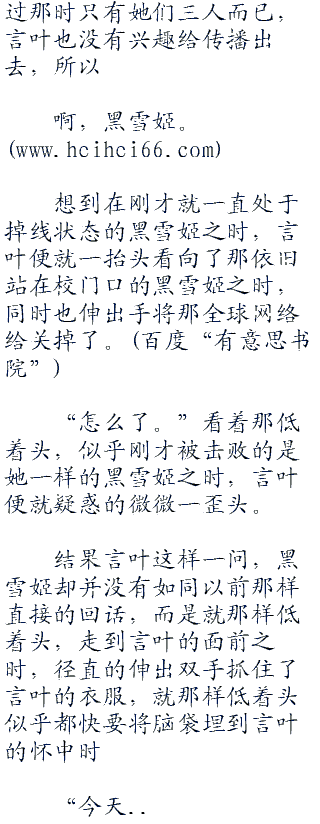 过那时只有她们三人而已，
言叶也没有兴趣给传播出
去，所以
啊，黑雪姬。
(www.hcihci66.com)
想到在刚才就一直处于
掉线状态的黑雪姬之时，言
叶便就一抬头看向了那依旧
站在校门口的黑雪姬之时，
同时也伸出手将那全球网络
给关掉了。(百度“有意思书
院”)
“怎么了。”看着那低
着头，似乎刚才被击败的是
她一样的黑雪姬之时，言叶
便就疑惑的微微一歪头。
结果言叶这样一问，黑
雪姬却并没有如同以前那样
直接的回话，而是就那样低
着头，走到言叶的面前之
时，径直的伸出双手抓住了
言叶的衣服，就那样低着头
似乎都快要将脑袋埋到言叶
的怀中时
“今天..